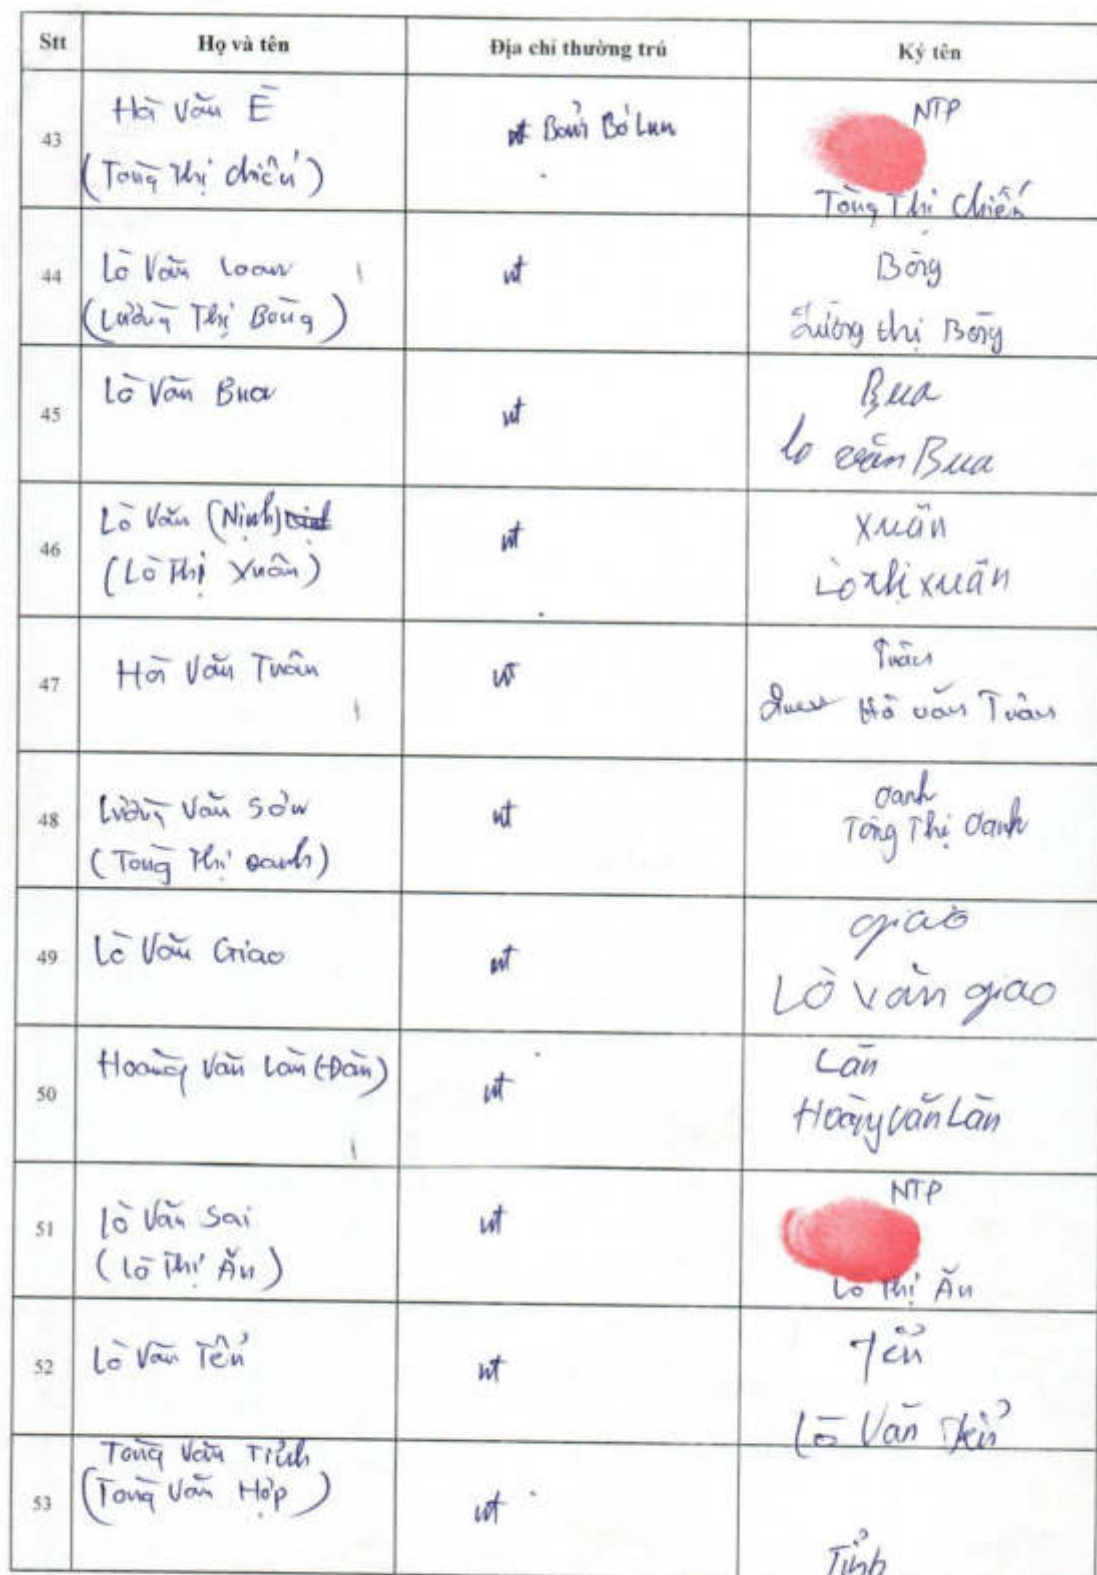 Stt Họ và tên Địa chỉ thường trú Ký tên
43
Hà Văn È
(Tòng Thị Chiến)
Bản Bó Lun
NTP
Tòng Thị Chiến
44
Lò Văn Loan
(Lường Thị Bòng)
nt
Bòng
Lường thị Bòng
45
Lò Văn Bua
nt
Bua
lo văn Bua
46
Lò Văn (Ninh)
(Lò Thị Xuân)
nt
Xuân
Lò thị xuân
47
Hà Văn Tuân
nt
Tuân
Hà văn Tuân
48
Lường Văn Sơn
(Tòng Thị oanh)
nt
oanh
Tòng Thị oanh
49
Lò Văn Giao
nt
giao
Lò văn giao
50
Hoàng Văn Làn (Đàn)
nt
Làn
Hoàng văn Làn
51
Lò Văn Sai
(Lò Thị Ăn)
nt
NTP
Lò Thị Ăn
52
Lò Văn Tển
nt
Tển
Lò Văn Tển
53
Tòng Văn Tỉnh
(Tòng Văn Hợp)
nt
Tỉnh